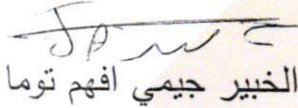 الخبير جيمي افهم توما